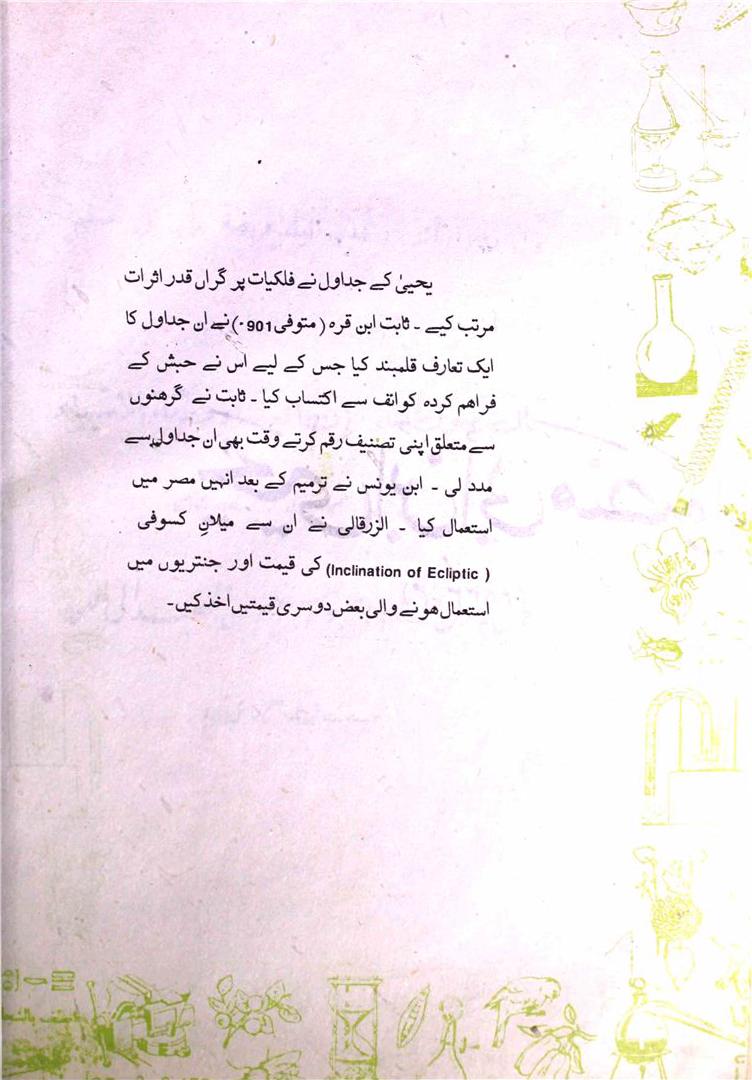 یحییٰ کے جداول نے فلکیات پر گراں قدر اثرات
مرتب کیے ۔ ثابت ابن قرہ (متوفی 901ء) نے ان جداول کا
ایک تعارف قلمبند کیا جس کے لیے اس نے حبش کے
فراهم کردہ کوائف سے اکتساب کیا ۔ ثابت نے گرهنوں
سے متعلق اپنی تصنیف رقم کرتے وقت بھی ان جداول سے
مدد لی ۔ ابن یونس نے ترمیم کے بعد انہیں مصر میں
استعمال کیا ۔ الزرقالی نے ان سے میلانِ کسوفی
(Inclination of Ecliptic) کی قیمت اور جنتریوں میں
استعمال هونے والی بعض دوسری قیمتیں اخذ کیں ۔